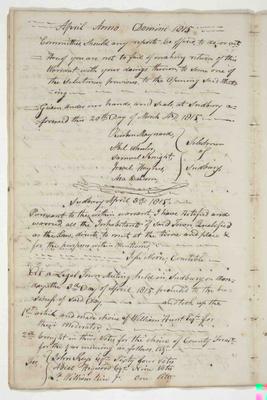 April Anno Domini 1815
Committee should any report be offered to do or act
thereof you are not to fail of making return of this
Warrant with your doings thereon to some one of
the Selectmen previous to the Opening said Meet
ing
Given under our hands and Seals at Sudbury a
foresaid this 20th Day of March AD 1815
Reuben Maynard
Abel
Samuel Knight
Israel Haynes
Asa
Selectmen
of
Sudbury
Sudbury April 3d 1815
Pursuant to the within warrant, I have Notified and
warned all the Inhabitants of said Town Qualified
as the Law directs to meet at the time and place &
for the purposes within Mentioned
Constable
At a Legal Town Meeting held in Sudbury on Mon
day the 3d Day of April 1815 proceeded to the bu
siness of said Day and took up the
1st article and made choice of William Hunt Esqr for
their Moderator
2nd Brought in their Votes for the choice of County Treasr
for the year ensuing as follows Viz
for John Keyes Esqr Sixty four Votes
Esqr Nine Votes
One Vote